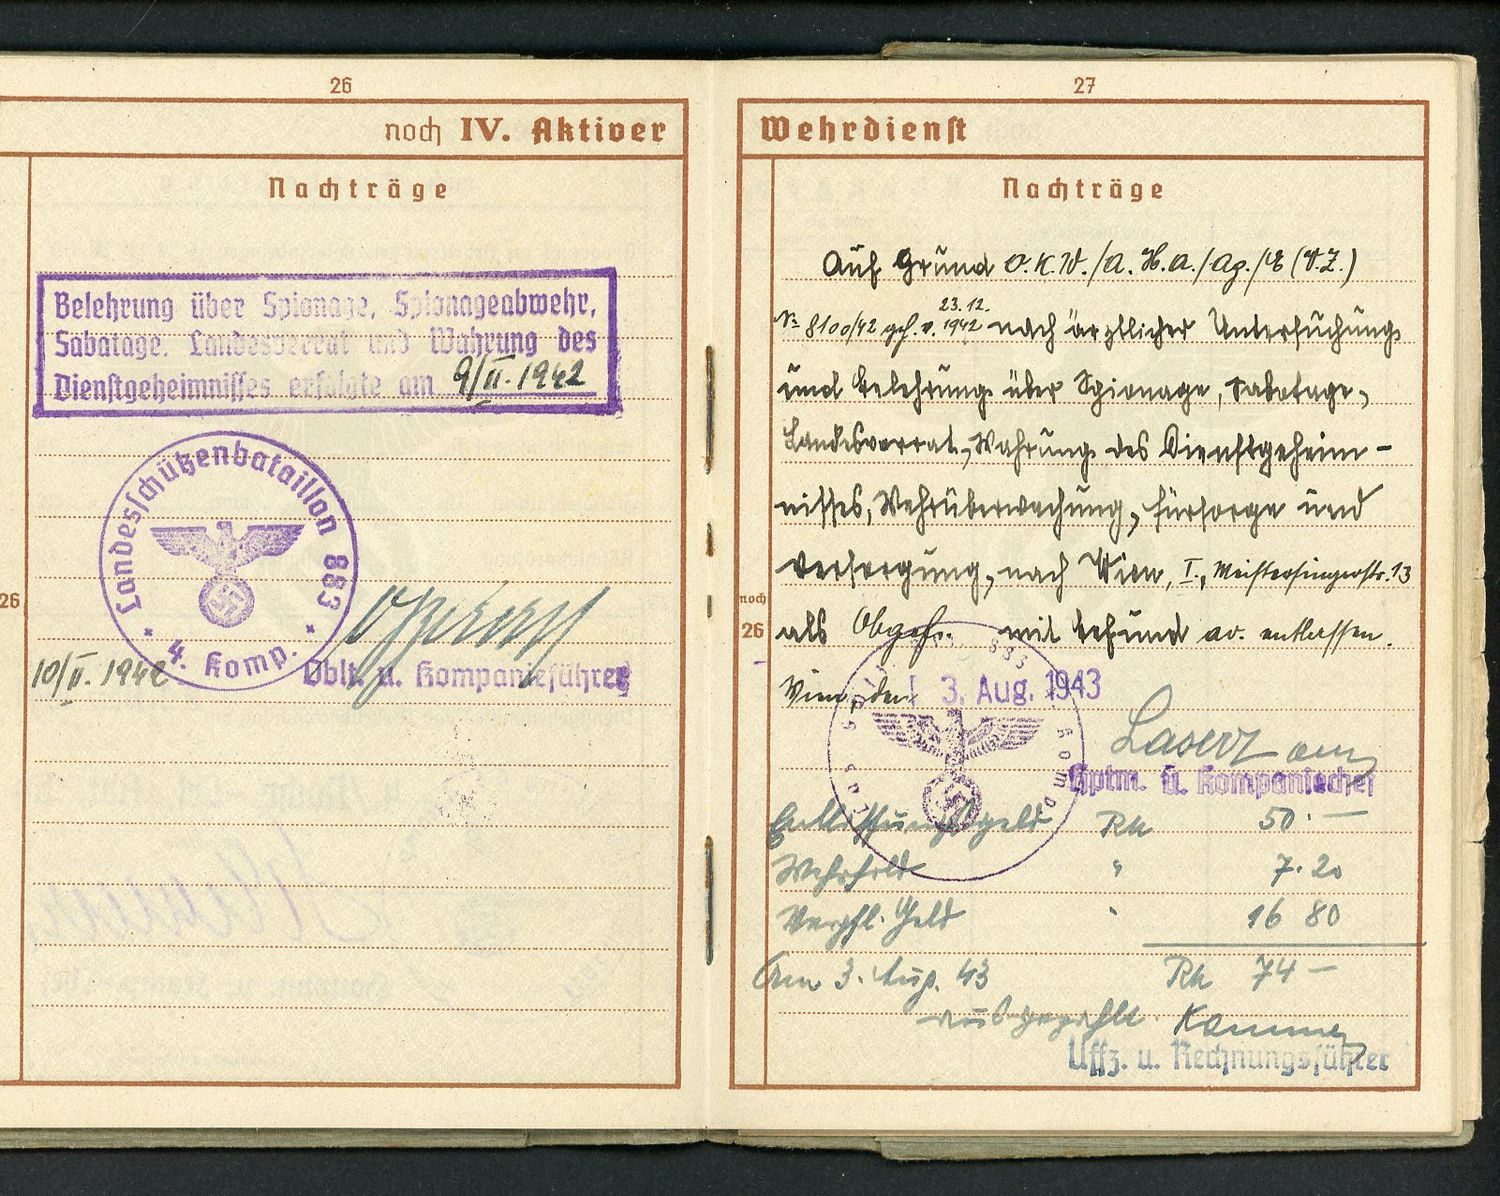 26
noch IV. Aktiver
Nachträge
Belehrung über Spionage, Spionageabwehr,
Sabatage, Landesverrat und Wahrung des
Dienstgeheimnisses erfolgte am 9/II. 1942
Landesschützenbataillon 883
4. Komp.
26
10/II. 1942
Oblt. u. Kompanieführer
27
Wehrdienst
Nachträge
Auf Grund O.K.W./A.H.A./Ag./E (V.Z.)
23.12.
№ 8100/42 geh. v. 1942 nach ärztlicher Untersuchung
und Belehrung über Spionage, Sabotage,
Landesverrat, Wahrung des Dienstgeheim-
nisses, Wehrüberwachung, Fürsorge und
Versorgung, nach Wien, I., Meistersingerstr. 13
noch
26
als Obgefr. mit Befund av. entlassen.
Wien, den 3. Aug. 1943
Hptm. u. Kompaniechef
Entlassungsgeld Rh 50.—
Wehrsold " 7.20
Verpfl. Geld " 16 80
Am 3. Aug. 43 Rh 74 —
ausgezahlt.
Uffz. u. Rechnungsführer